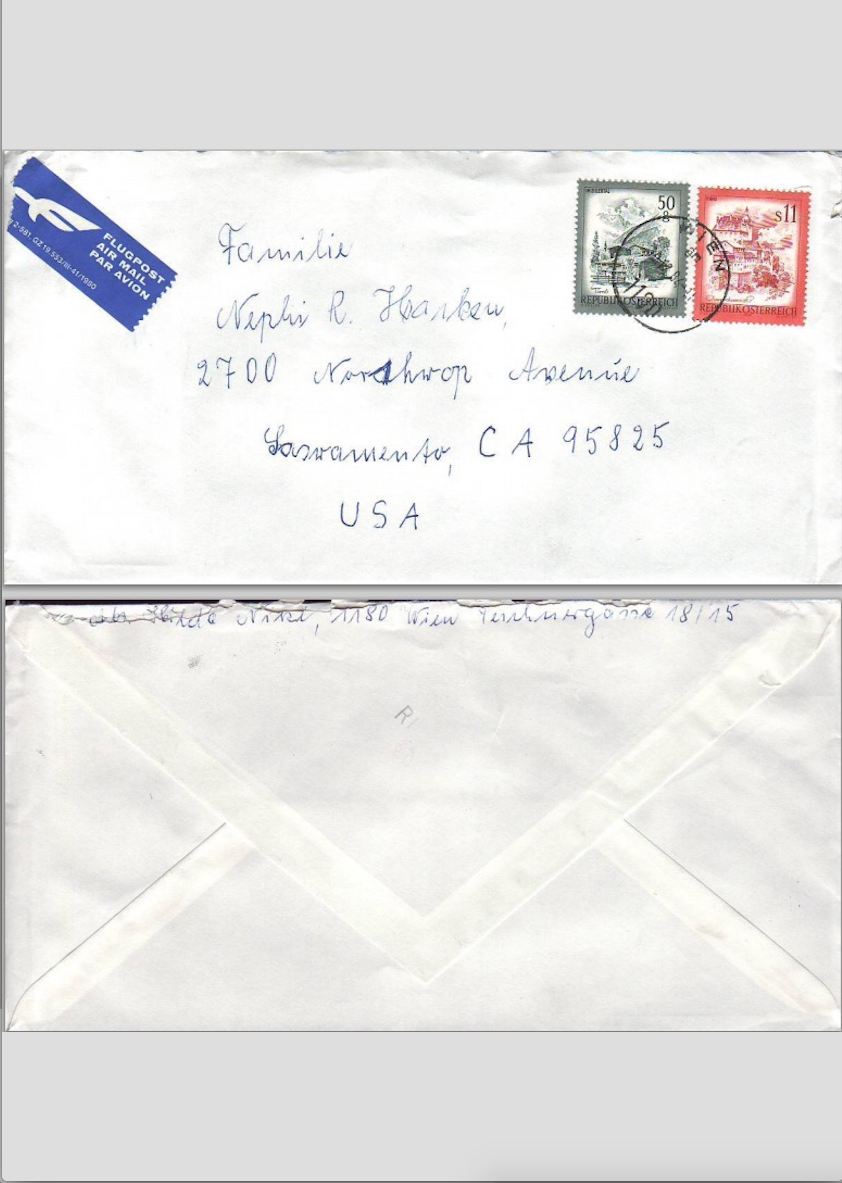 FLUGPOST
AIR MAIL
PAR AVION
2-581, GZ 19 553/III-41/1980
ZILLERTAL
50
g
REPUBLIK ÖSTERREICH
s11
REPUBLIK ÖSTERREICH
WIEN
1180
Familie
Nephi R. Harken,
2700 Northrop Avenue
Sacramento, CA 95825
USA
Hilda 1180 Wien 18/15
R